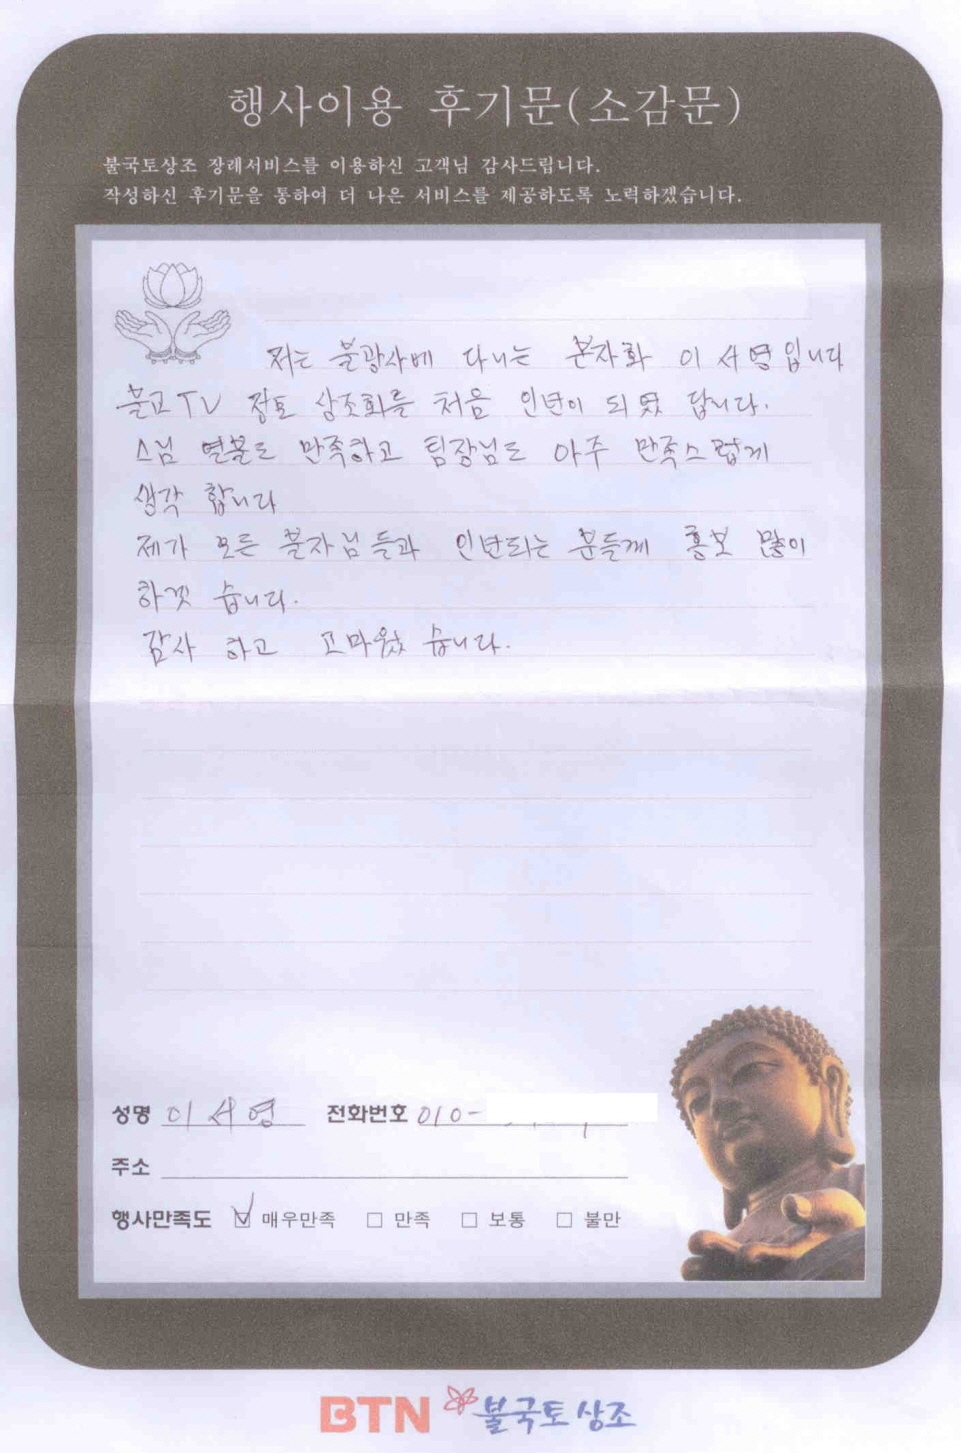 행사이용 후기문(소감문)
불국토상조 장례서비스를 이용하신 고객님 감사드립니다.
작성하신 후기문을 통하여 더 나은 서비스를 제공하도록 노력하겠습니다.
저는 불광사에 다니는 이서영입니다
불교TV 정토 상조회를 처음 인년이 되였 답니다.
스님 염불도 만족하고 팀장님도 아주 만족스럽게
생각 합니다
제가 모든 불자님들과 인년되는 분들께 홍보 많이
하겟 습니다.
감사 하고 고마웠 습니다.
성명 이서영 전화번호 010-
주소
행사만족도 ☑ 매우만족 □ 만족 □ 보통 □ 불만
BTN 불국토상조